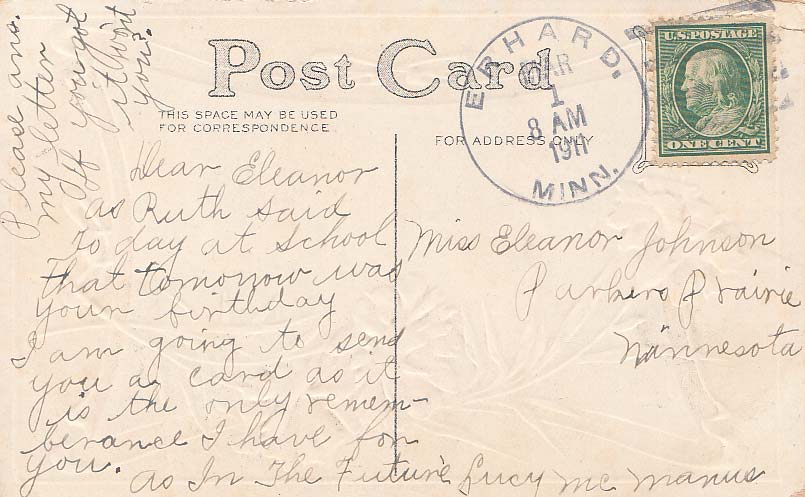 Please ans.
my letter
If you got
it won't
you?
Post Card
THIS SPACE MAY BE USED
FOR CORRESPONDENCE
FOR ADDRESS ONLY
ERHARD.
MAR
1
8 AM
1911
MINN.
U.S. POSTAGE
ONE CENT
Dear Eleanor
as Ruth said
to day at school
that tomorrow was
your birthday
I am going to send
you a card as it
is the only remem-
berance I have for
you.
as In The Future Lucy Mc Manus
Miss Eleanor Johnson
Parkers Prairie
Minnesota